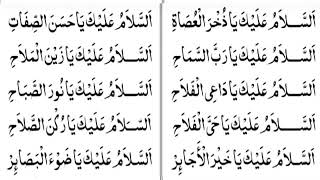 اَلسَّلَامُ عَلَيْكَ يَا ذُخْرَ الْعُصَاةِ اَلسَّلَامُ عَلَيْكَ يَا حَسَنَ الصِّفَاتِ
اَلسَّلَامُ عَلَيْكَ يَا رَبَّ السَّمَاحِ اَلسَّلَامُ عَلَيْكَ يَا زَيْنَ الْمَلَاحِ
اَلسَّلَامُ عَلَيْكَ يَا دَاعِىَ الْفَلَاحِ اَلسَّلَامُ عَلَيْكَ يَا نُورَ الصَّبَاحِ
اَلسَّلَامُ عَلَيْكَ يَا حَىَّ الْفَلَاحِ اَلسَّلَامُ عَلَيْكَ يَا رُكْنَ الصَّلَاحِ
اَلسَّلَامُ عَلَيْكَ يَا خَيْرَ اَلسَّلَامُ عَلَيْكَ يَا ضَوْءَ الْبَصَائِرْ